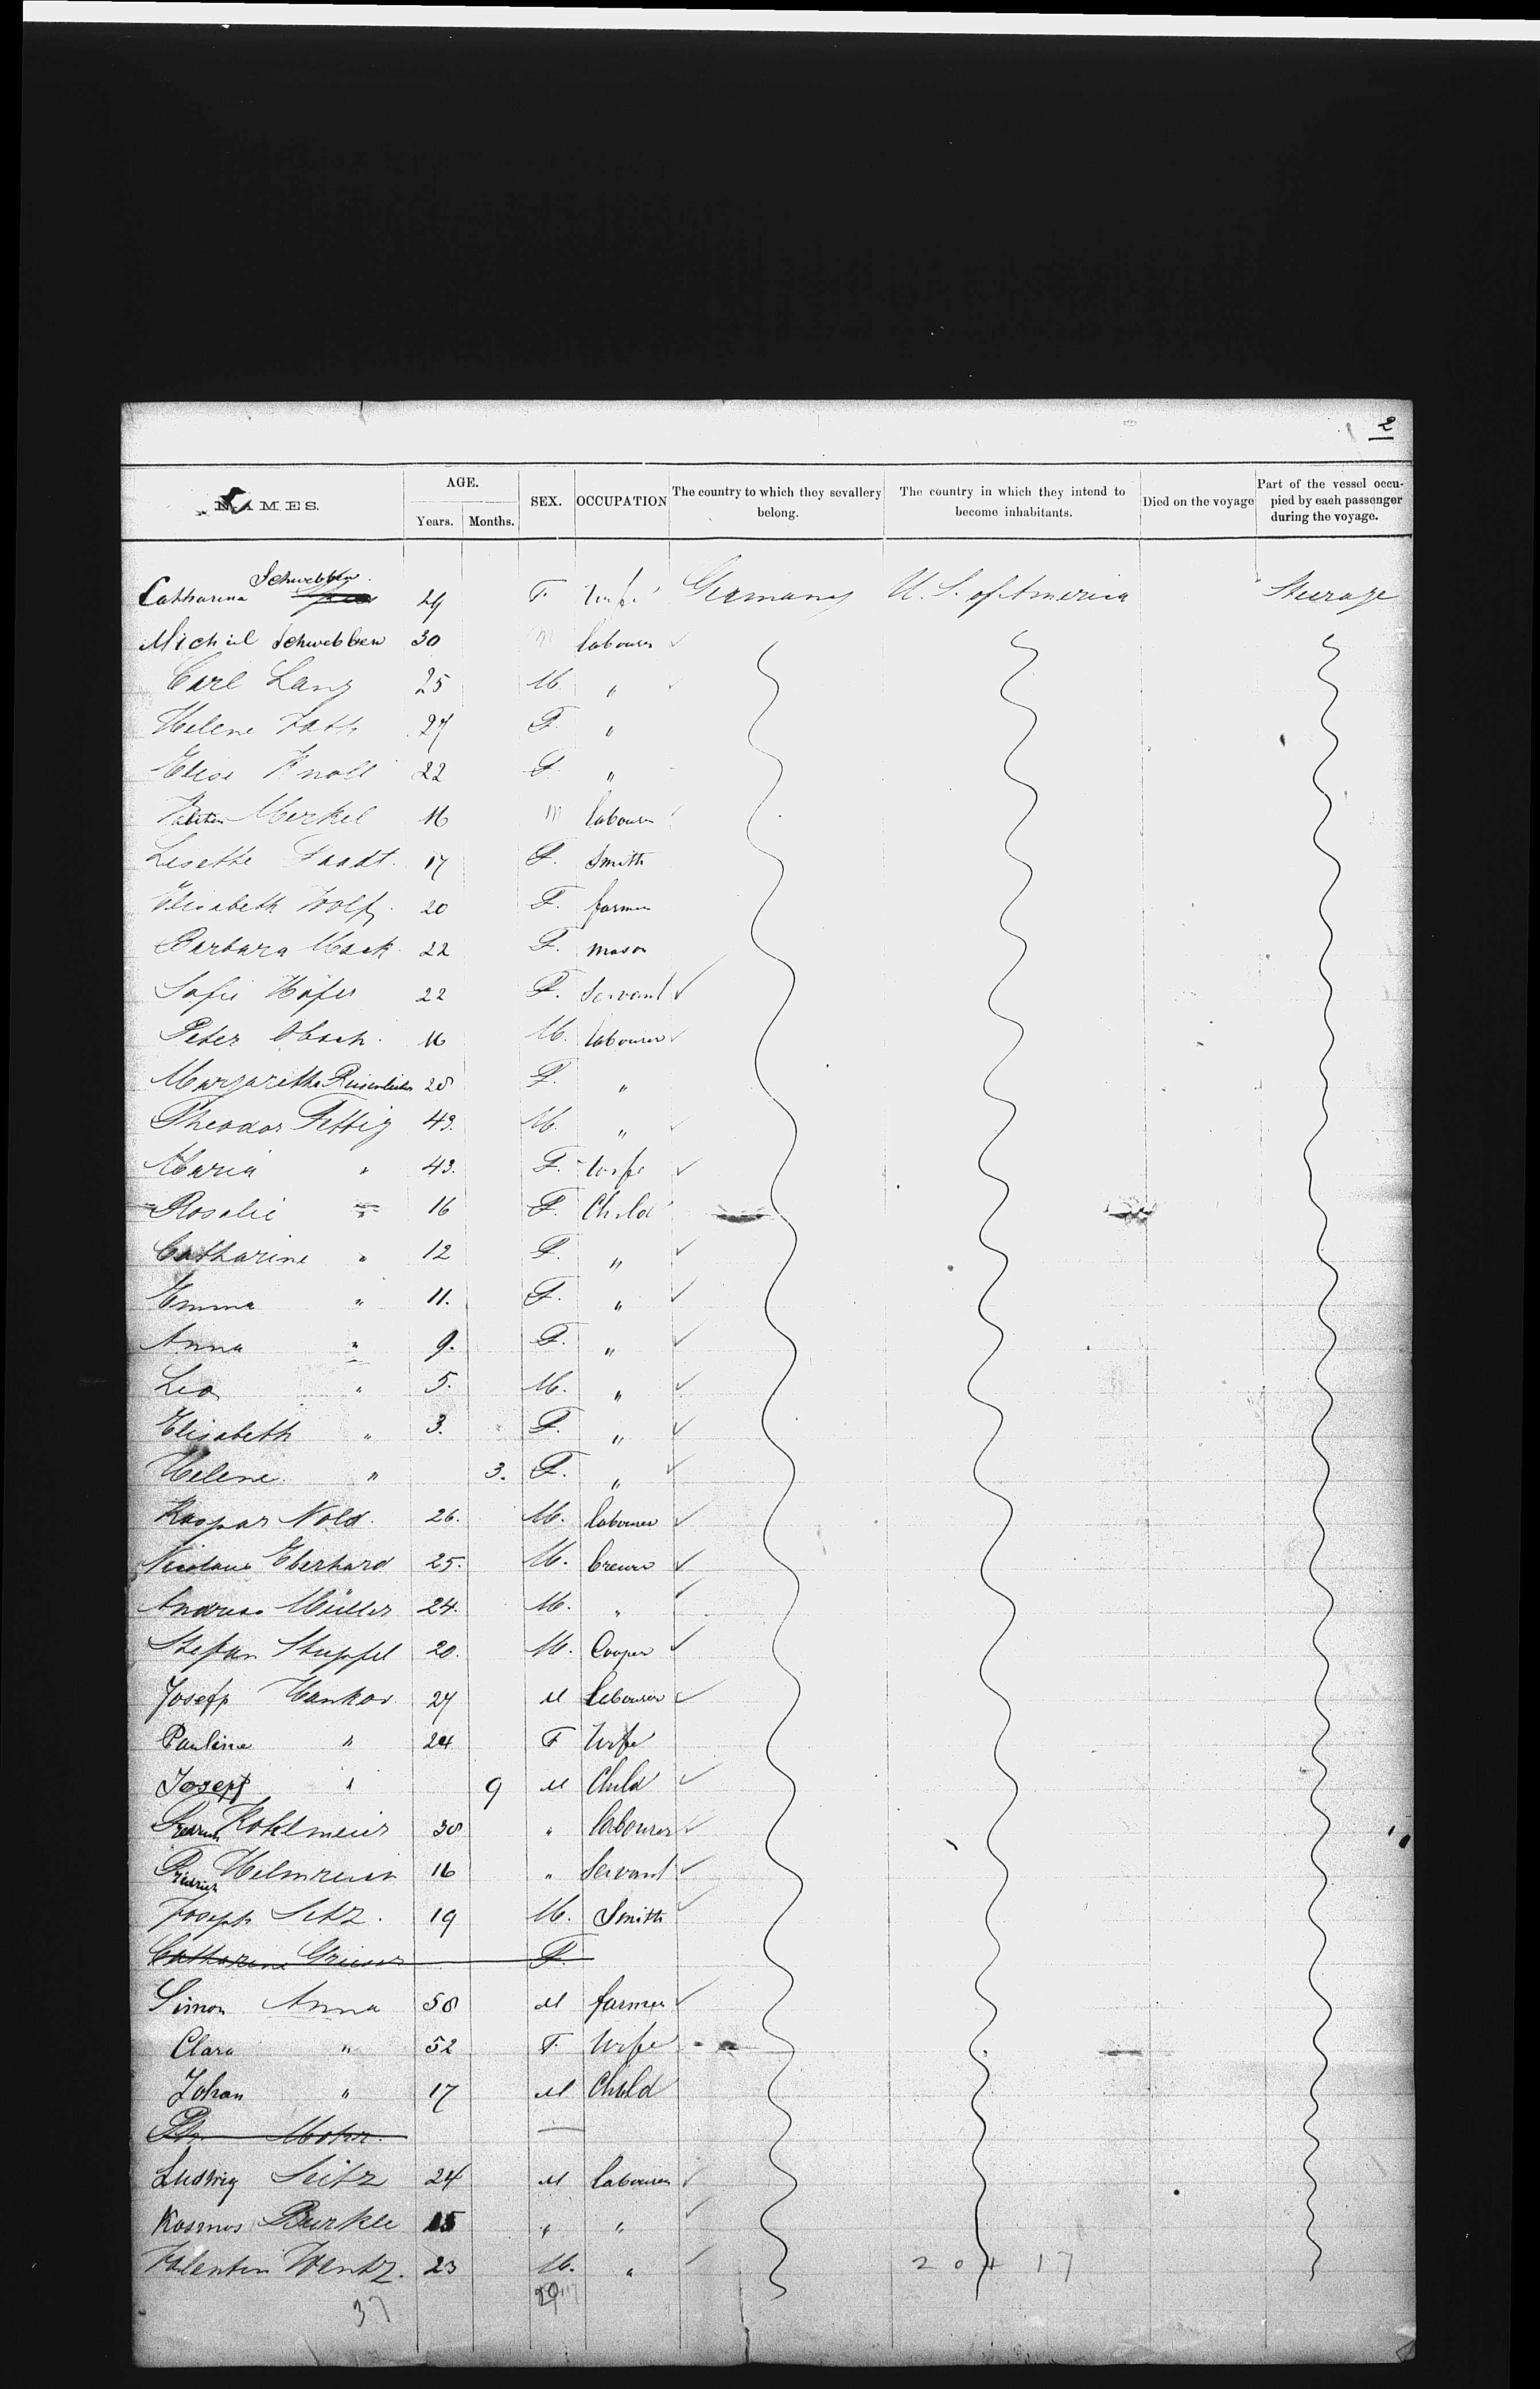 2
NAMES. AGE. Years. Months. SEX. OCCUPATION The country to which they sevallery belong. The country in which they intend to become inhabitants. Died on the voyage Part of the vessel occupied by each passenger during the voyage.
Schwebben
Catharina 29 F. Wife Germany U. S. of America Steerage
Michiel Schwebben 30 m labourer
Carl Lang 25 M. "
Helene 27 F. "
Elise Knoll 22 F. "
Merkel 16 m labourer
Lisette Faadt. 17 F. Smith
Elisabeth Wolf 20 F. farmer
Barbara Mack 22 F. mason
Sofie Höfer 22 F. Servant
Peter 16 M. labourer
Margaretha 28 F. "
Theodor Fettig 43. M. "
Maria " 43. F. Wife
Rosalie " 16 F. Child
Catharine " 12 F. "
Emma " 11. F. "
Anna " 9. F. "
Leo " 5. M. "
Elisabeth " 3. F. "
Helene " 3. F. "
Kaspar Nold. 26. M. labourer
Nicolaus Eberhard 25. M. brewer
Andreas Müller 24. M. "
Stefan Stuppfel 20. M. Cooper
Josefp Hankor 27 M labourer
Pauline " 24 F Wife
Josepf " 9 M Child
Friedrich Kohlmeier 38 " labourer
Friedrich Helmreich 16 " Servant
Joseph Seitz. 19 M. Smith
Catharine Grieser F.
Simon Anna 58 M farmer
Clara " 52 F. Wife
Johan " 17 M Child
Ludwig Seitz 24 M labourer
Kosmos Burkle 15 " "
Valentin Wentz. 23 M. "
20 + 17
37